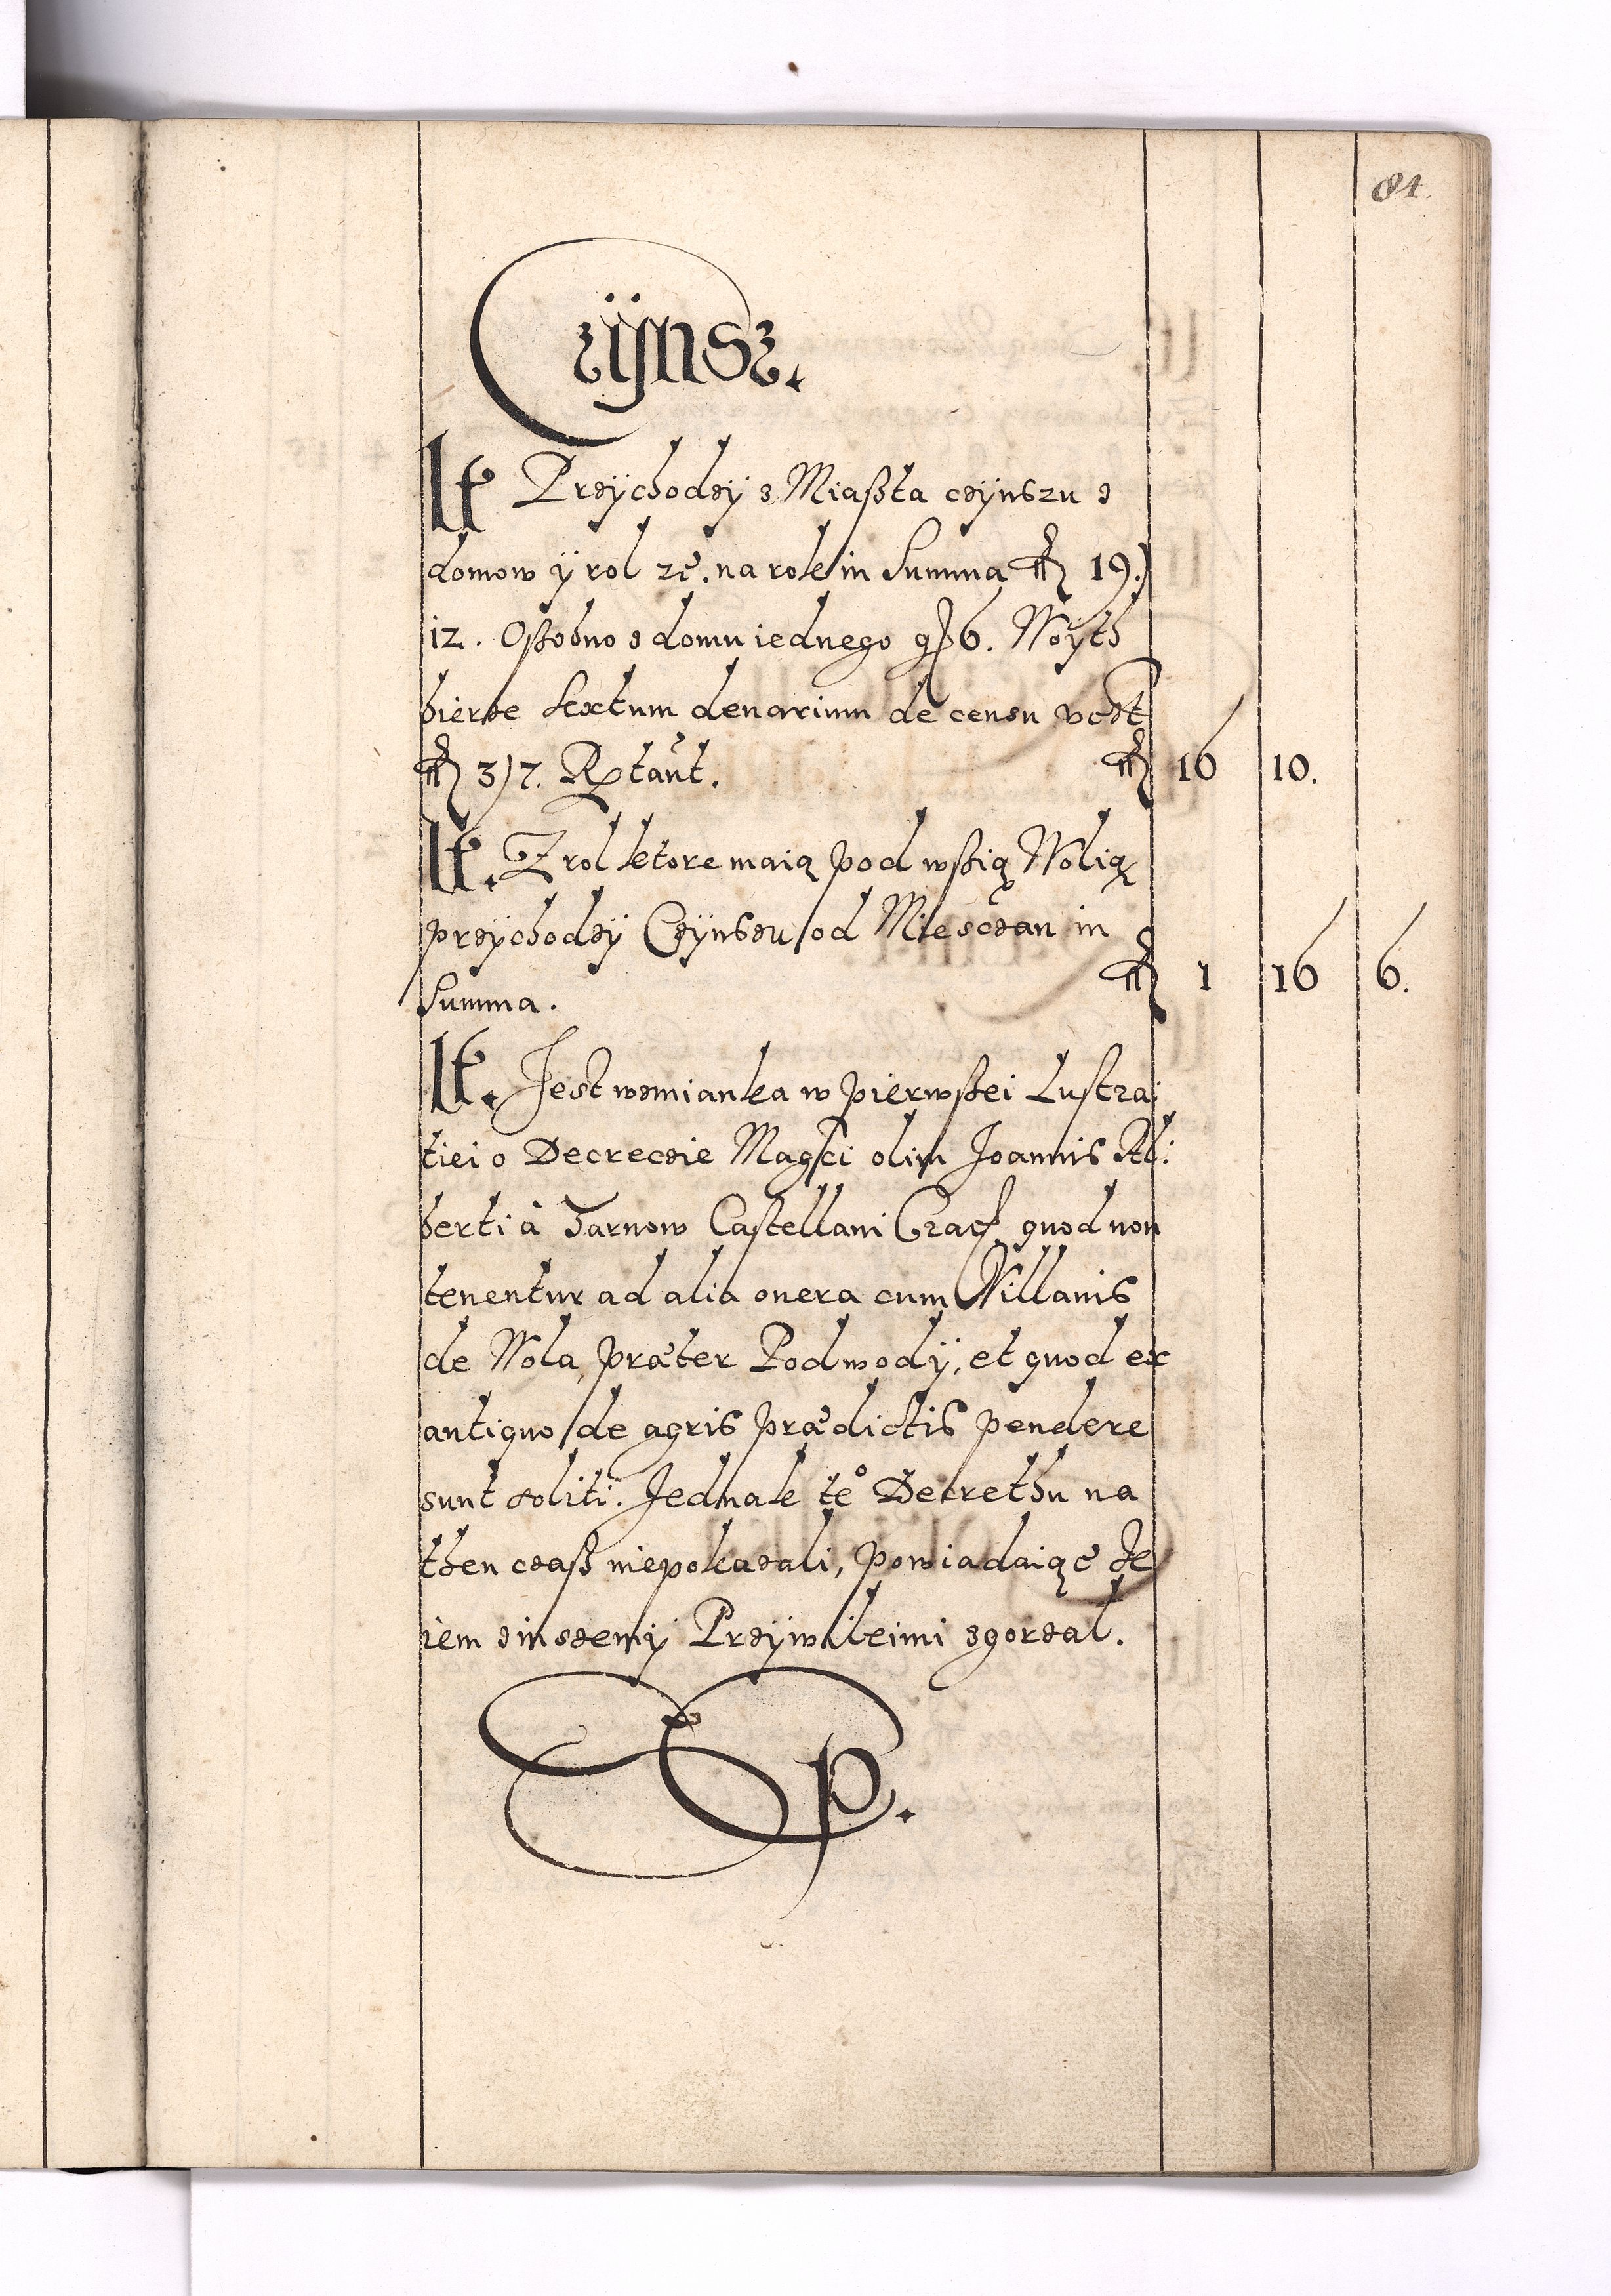 84.
Czÿnsz.
It Przÿchodzÿ z Miaßta czÿnszu z
domow ÿ rol ze. na rok in Summa 19)
12. Oßobno z domu iednego gß 6. Woÿth
bierze sextum denarium de censu
3)7. Rxtant. 16 10.
It. Z rol ktore maią pod wßią Wolią
przÿchodzÿ Czÿnszu od Miesczan in
Summa. 1 16 6.
It. Jest wzmianka w pierwßei Lustra:
tiei o Decreczie Magci olim Joannis Al:
berti à Tarnow Castellani Crac. quod non
tenentur ad alia onera cum Villanis
de Wola præter Podwodÿ, et quod ex
antiquo de agris prædictis pendere
sunt soliti. Jednak te° Decrethu na
then czaß niepokazali, powiadaiąc Je
iem z inszemÿ Przÿwileimi zgorzal.
p.